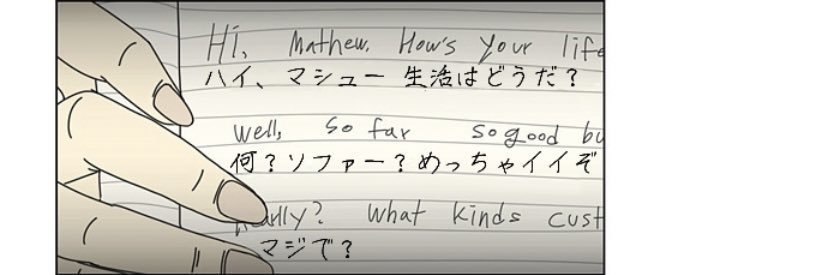 Hi, Mathew. How's your life
ハイ、マシュー 生活はどうだ？
well, so far so good bu
何？ソファー？めっちゃイイぞ
Really? What kinds cust
マジで？